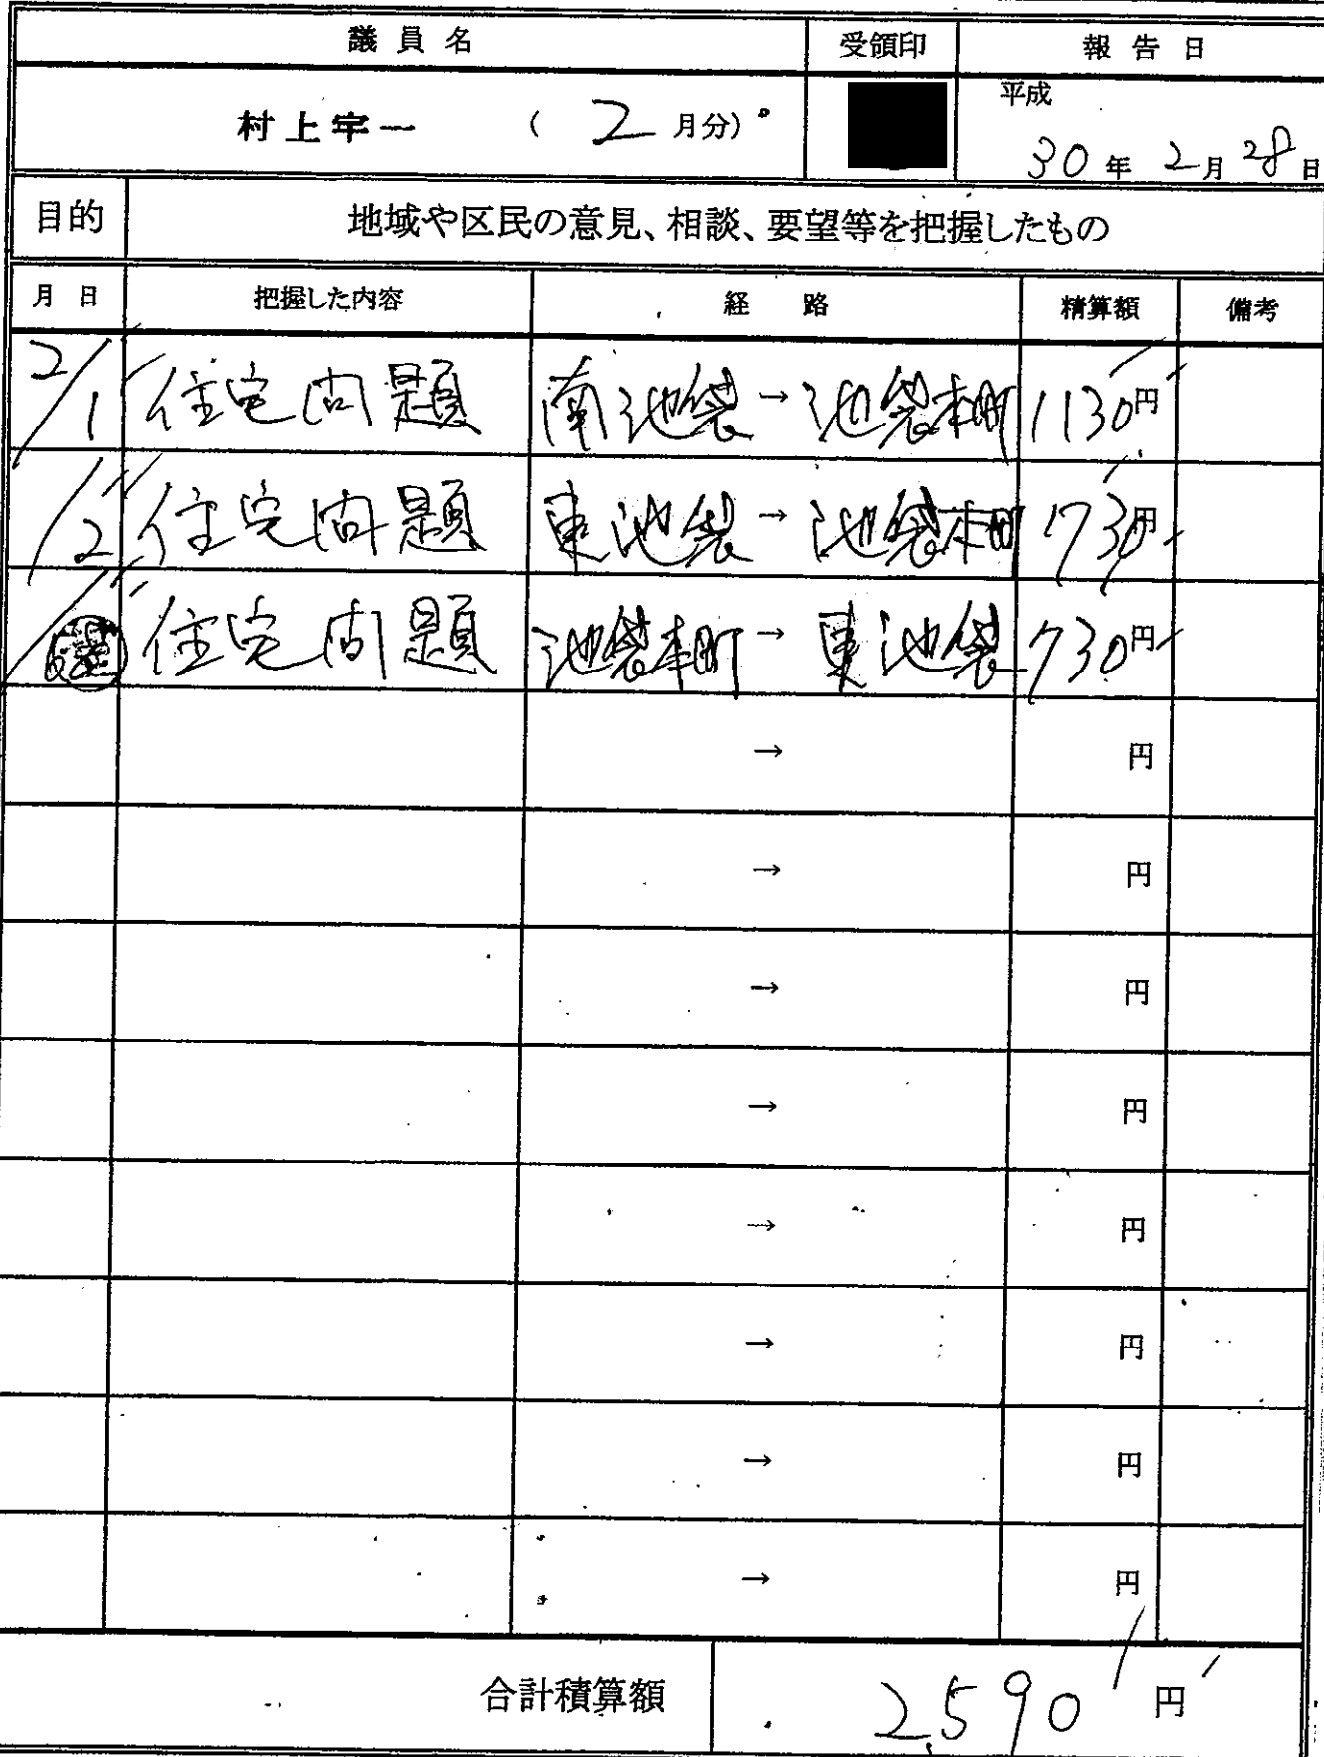 議員名 受領印 報告日
村上宇一 (2月分) 平成 30年2月28日
目的 地域や区民の意見、相談、要望等を把握したもの
月日 把握した内容 経路 精算額 備考
2/1 住宅問題 南池袋→池袋本町 1130円
/2 住宅問題 東池袋→池袋本町 730円
/ 住宅問題 池袋本町→東池袋 730円
→ 円
→ 円
→ 円
→ 円
→ 円
→ 円
→ 円
→ 円
合計積算額 2,590円